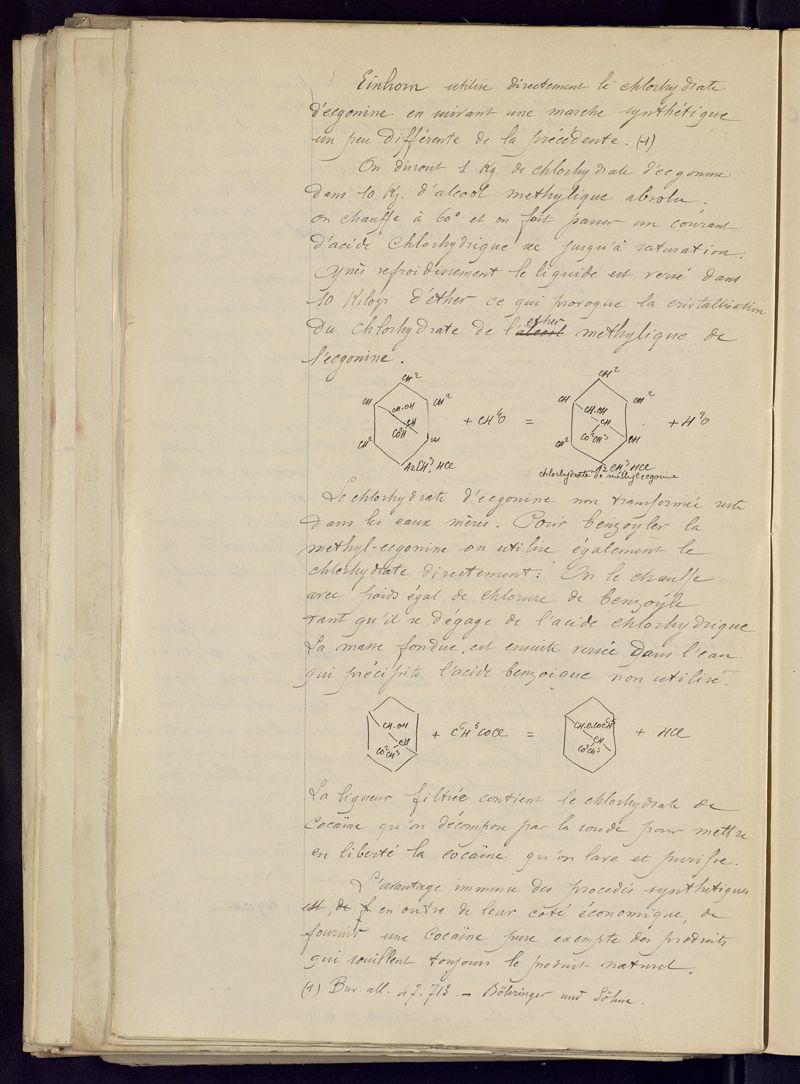 Einhorn utilise directement le chlorhydrate
d'ecgonine en suivant une marche synthétique
un peu différente de la précédente. (1)
On dissout 1 Kg. de chlorhydrate d'ecgonine
dans 10 Kg. d'alcool méthylique absolu.
On chauffe à 60° et on fait passer un courant
d'acide chlorhydrique sec jusqu'à saturation.
Après refroidissement le liquide est versé dans
10 Kilogr d'éther ce qui provoque la cristallisation
du chlorhydrate de l'alcool ether méthylique de
l'ecgonine.
CH² CH² 
CH CH² CH CH²
CH.OH CH.OH
CH + CH⁴O = CH + H²O
CO²H CO²CH³
CH² CH CH² CH
AzCH³.HCl AzCH³HCl
chlorhydrate de méthylecgonine
Le chlorhydrate d'ecgonine non transformée reste
dans les eaux mères. Pour benzoyler la
méthyl-ecgonine on utilise également le
chlorhydrate directement: On le chauffe
avec poids égal de chlorure de benzoÿle
tant qu'il se dégage de l'acide chlorhydrique
La masse fondue est ensuite versée dans l'eau
qui précipite l'acide benzoïque non utilisé.
CH.OH CH.OCOC⁶H⁵
CH + C⁶H⁵COCl = CH + HCl
CO²CH³ CO²CH³
La liqueur filtrée contient le chlorhydrate de
Cocaïne qu'on décompose par la soude pour mettre
en liberté la cocaïne qu'on lave et purifie.
L'avantage immense des procédés synthétiques
est, de f en outre de leur coté économique, de
fournir une Cocaïne pure exempte des produits
qui souillent toujours le produit naturel.
(1) Bur. all. 47.713. — Böhringer und Söhne.